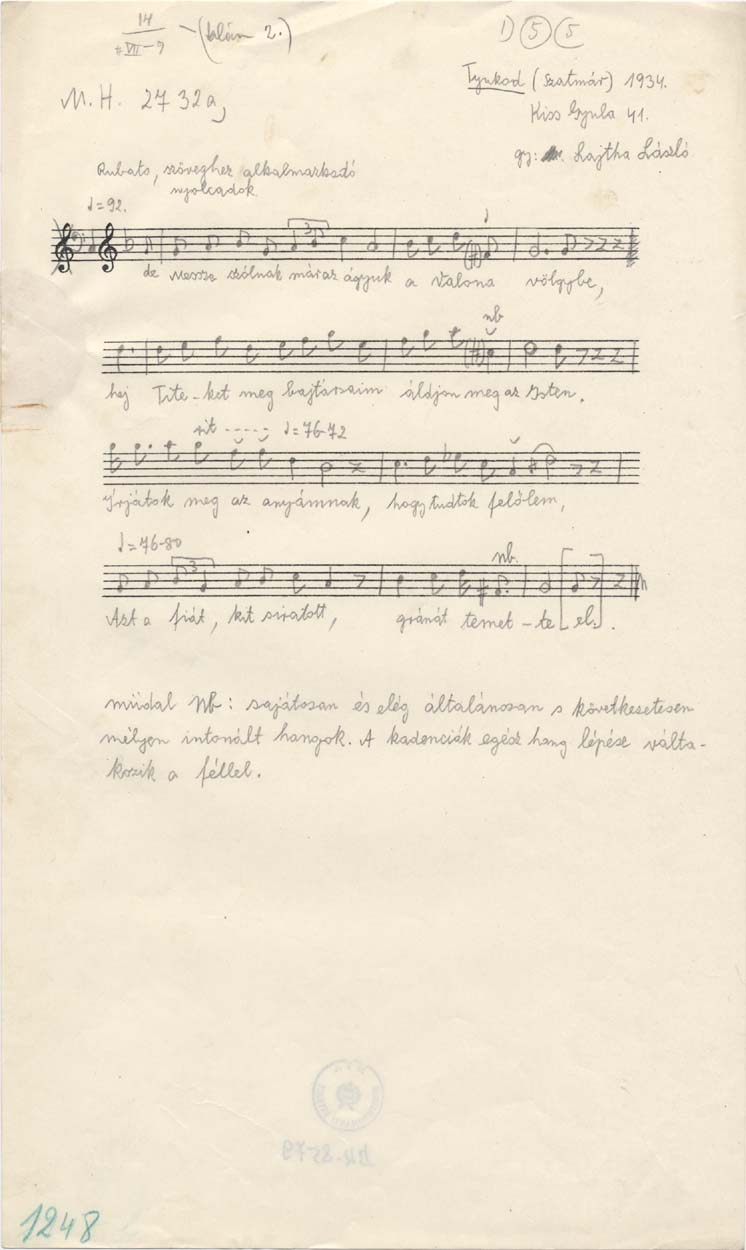 14
VII-9
(talán 2.)
1) 5 5
M. H. 2732a,
Tyukod (Szatmár) 1934.
Kiss Gyula 41.
gy: Lajtha László
Rubato, szöveghez alkalmazkodó
nyolcadok
♩=92.
3
de messze szólnak máraz ágyuk a Valona völgybe,
nb
hej Tite-ket meg bajtársaim áldjon meg az Isten.
rit ----- ♩=76-72
Írjátok meg az anyámnak, hogy tudtok felőlem,
♩=76-80
3
nb.
Azt a fiát, kit siratott, gránát temet-te [el].
műdal Nb: sajátosan és elég általánosan s következetesen
mélyen intonált hangok. A kadenciák egész hang lépése válta-
kozik a féllel.
1248